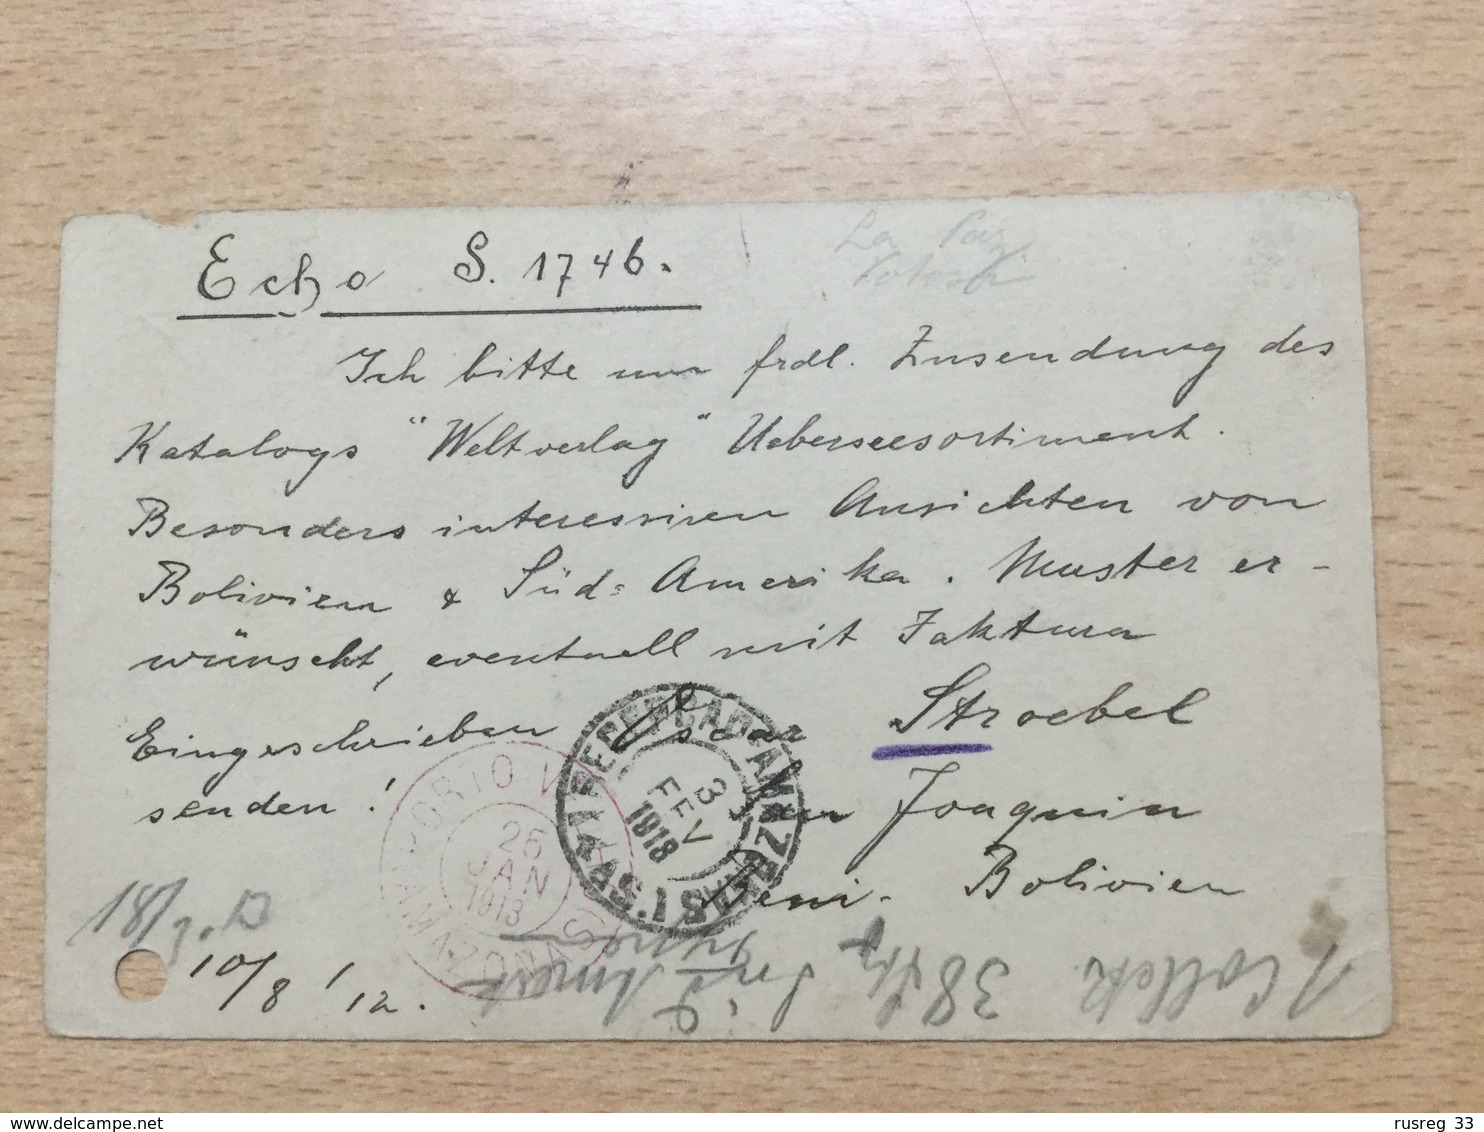 Echo S. 1746.
La Paz
Ich bitte um frdl. Zusendung des
Katalogs "Weltverlag" Ueberseesortiment.
Besonders interessiren Ansichten von
Bolivien & Süd-Amerika. Muster er-
wünscht, eventuell mit Faktura
Eingeschrieben
senden!
Oscar Stroebel
San Joaquin
Beni. Bolivien
PORTO V
25
JAN
1913
AMAZONAS
3
FEV
1918
18/3.
10/8 12.
1 Collekt
38
rusreg 33